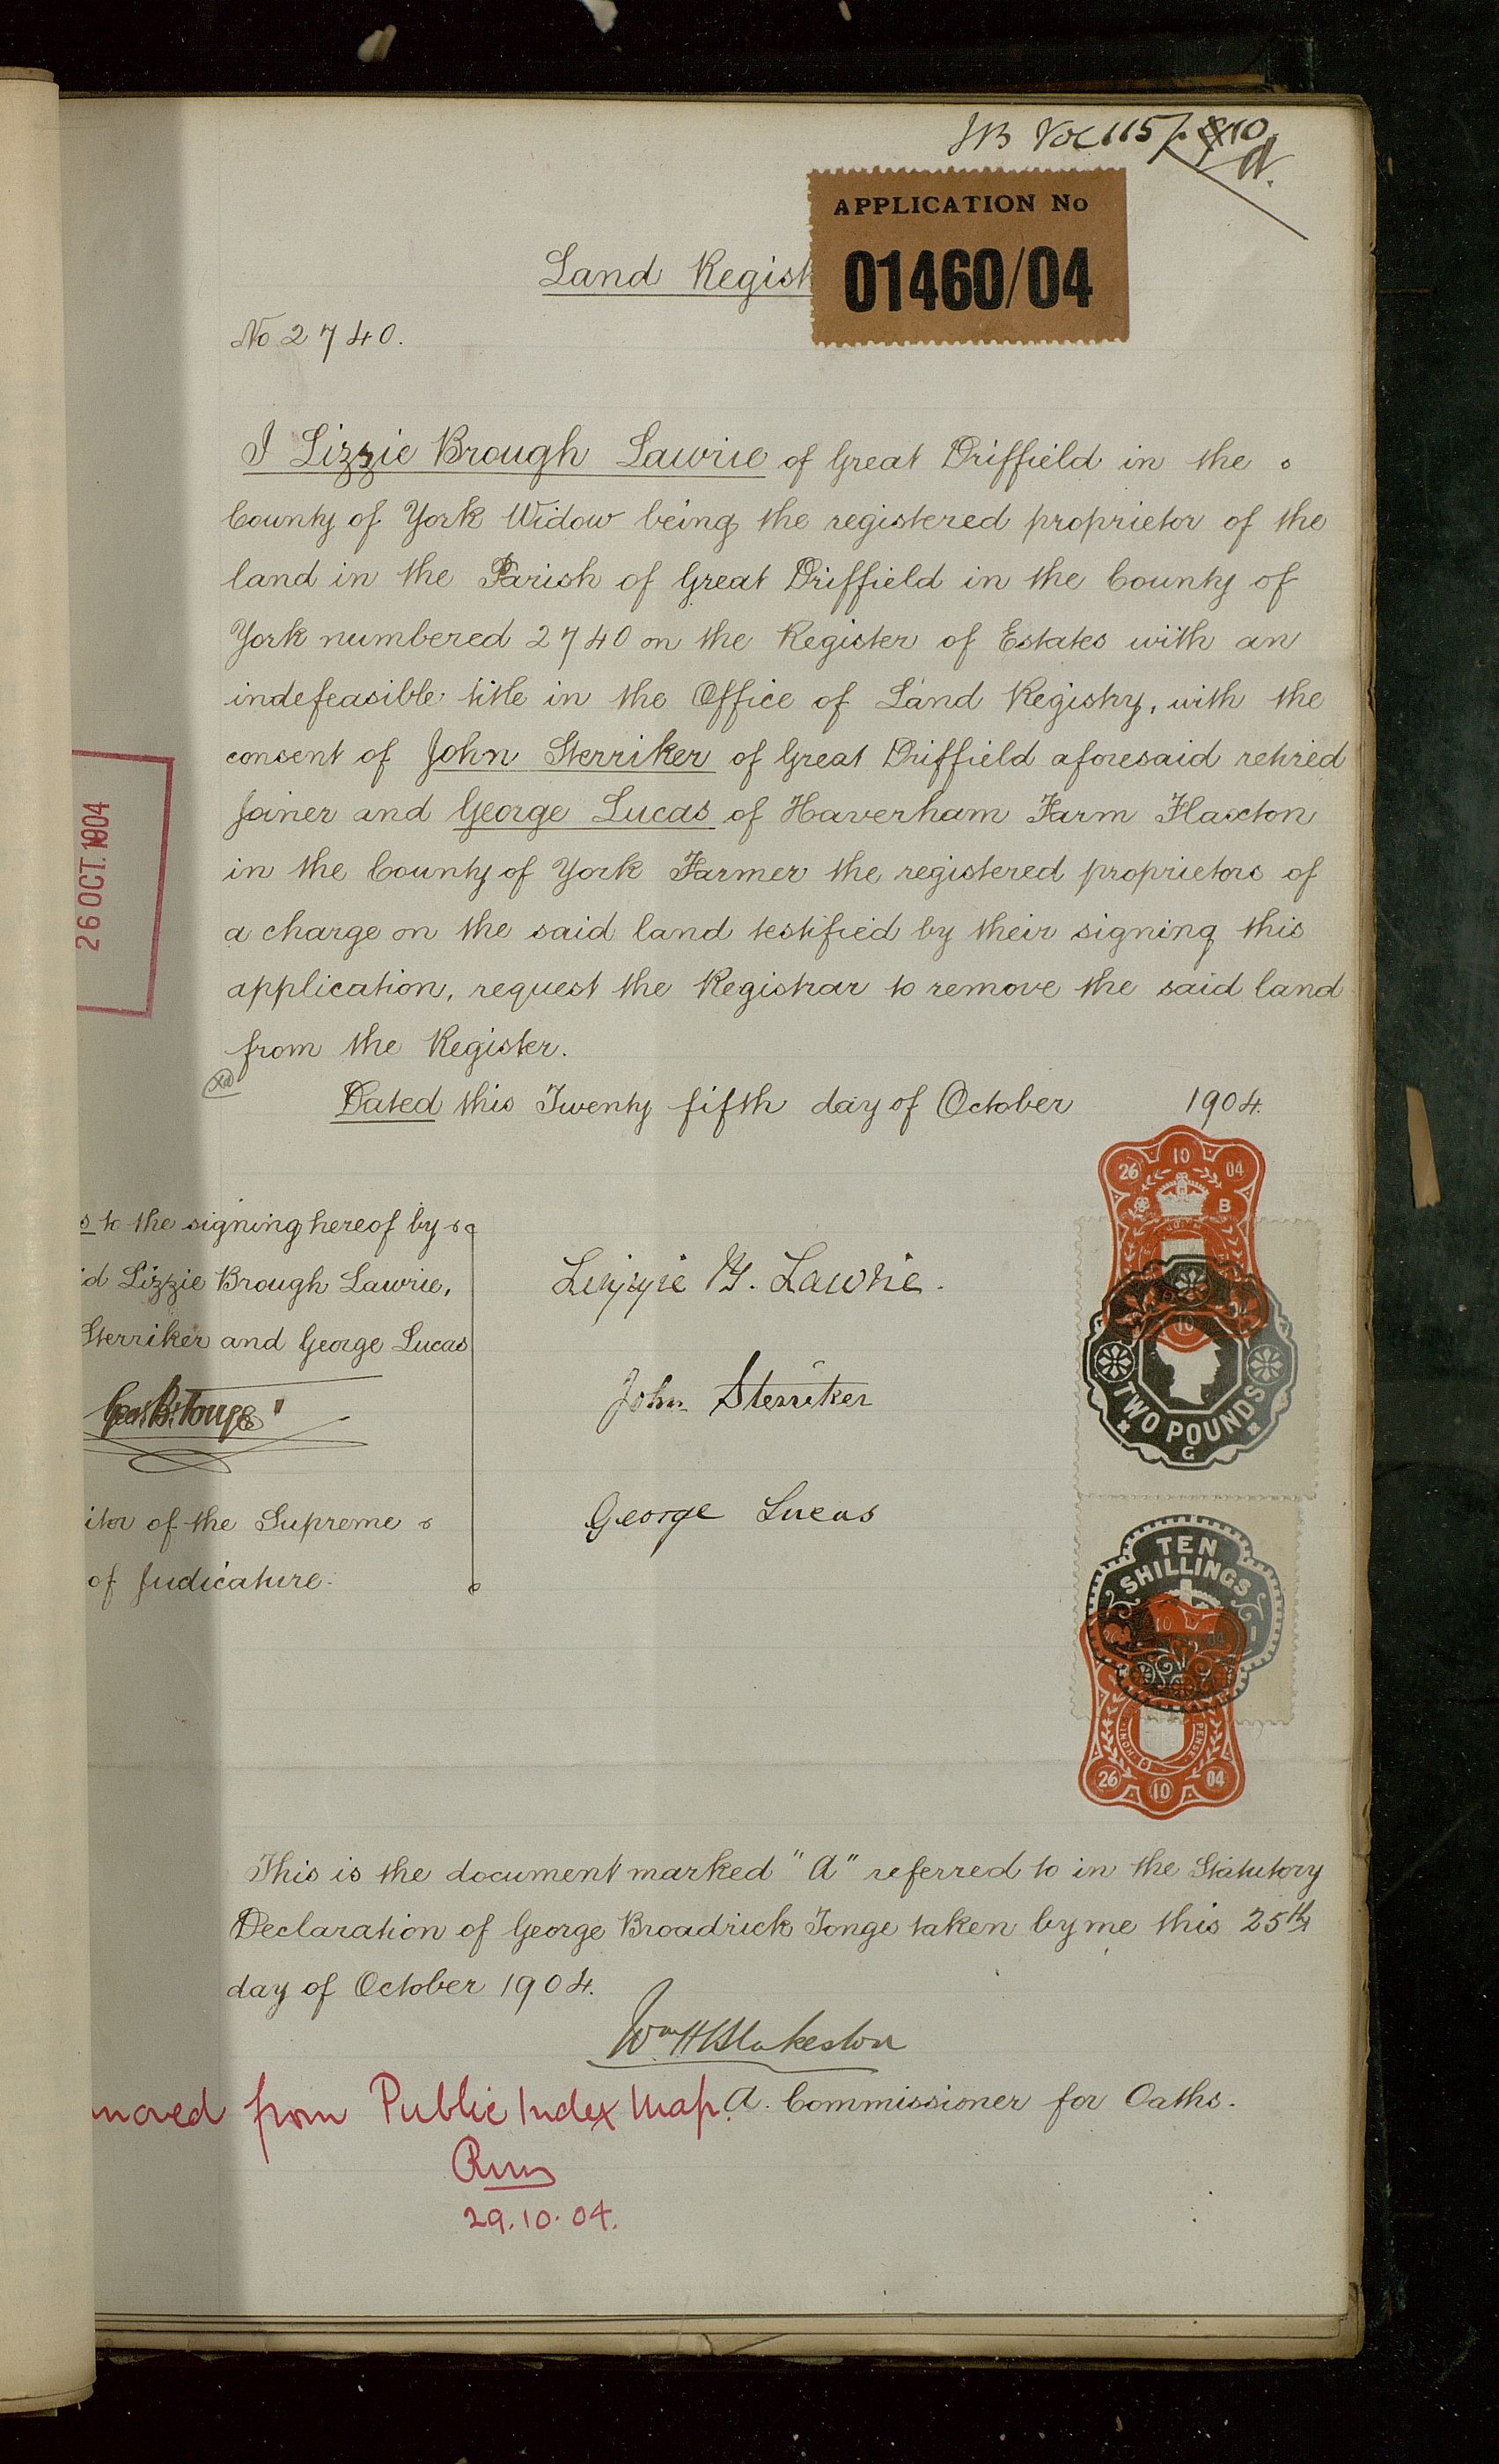 Vol 115
APPLICATION No
01460/04
Land Regist
No 2740.
I Lizzie Brough Lawrie of Great Driffield in the
County of York Widow being the registered proprietor of the
land in the Parish of Great Driffield in the County of
York numbered 2740 on the Register of Estates with an
indefeasible title in the Office of Land Registry, with the
consent of John Sterriker of Great Driffield aforesaid retired
Joiner and George Lucas of Haverham Farm Flaxton
in the County of York Farmer the registered proprietors of
a charge on the said land testified by their signing this
application, request the Registrar to remove the said land
from the Register.
Dated this Twenty fifth day of October 1904.
26 OCT. 1904
s to the signing hereof by
d Lizzie Brough Lawrie,
Sterriker and George Lucas
Geo. B. Tonge
itor of the Supreme
of Judicature.
Lizzie B. Lawrie.
John Sterriker
George Lucas
26 10 04
B
10
TWO POUNDS
G
TEN
SHILLINGS
10 04
HONI PENSE
26 10 04
This is the document marked "A" referred to in the Statutory
Declaration of George Broadrick Tonge taken by me this 25th
day of October 1904.
Wm H Blakeston
A Commissioner for Oaths.
moved from Public Index Map.
29.10.04.